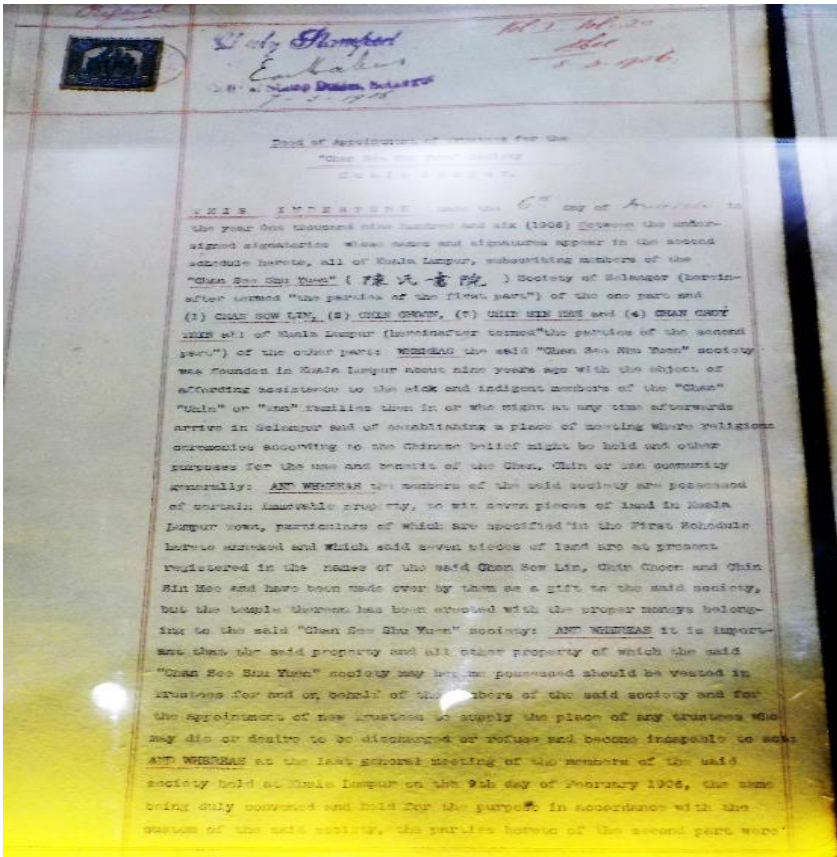 Original
Duly Stamped
Vol. I. Fol. 20
of Stamp Duties, Selangor
7-3-1906
5.3.1906.
Deed of Appointment of Trustees for the
"Chan See Shu Yuen" Society
Kuala Lumpur.
THIS INDENTURE made the 6th day of in
the year One thousand nine hundred and six (1906) Between the under-
signed signatories whose names and signatures appear in the second
schedule hereto, all of Kuala Lumpur, subscribing members of the
"Chan See Shu Yuen" ( 陳氏書院 ) Society of Selangor (herein-
after termed "the parties of the first part") of the one part and
(1) CHAN SOW LIN, (2) CHIN CHOON, (3) CHIN SIN HEE and (4) CHAN CHOY
THIN all of Kuala Lumpur (hereinafter termed "the parties of the second
part") of the other part: WHEREAS the said "Chan See Shu Yuen" society
was founded in Kuala Lumpur about nine years ago with the object of
affording assistance to the sick and indigent members of the "Chan"
"Chin" or "Tan" families then in or who might at any time afterwards
arrive in Selangor and of establishing a place of meeting where religious
ceremonies according to the Chinese belief might be held and other
purposes for the use and benefit of the Chan, Chin or Tan community
generally: AND WHEREAS the members of the said society are possessed
of certain immovable property, to wit seven pieces of land in Kuala
Lumpur town, particulars of which are specified in the First Schedule
hereto annexed and which said seven pieces of land are at present
registered in the names of the said Chan Sow Lin, Chin Choon and Chin
Sin Hee and have been made over by them as a gift to the said society,
but the temple thereon has been erected with the proper moneys belong-
ing to the said "Chan See Shu Yuen" society: AND WHEREAS it is import-
ant that the said property and all other property of which the said
"Chan See Shu Yuen" society may become possessed should be vested in
trustees for and on behalf of the members of the said society and for
the appointment of new trustees to supply the place of any trustees who
may die or desire to be discharged or refuse and become incapable to act:
AND WHEREAS at the last general meeting of the members of the said
society held at Kuala Lumpur on the 9th day of February 1906, the same
being duly convened and held for the purpose in accordance with the
custom of the said society, the parties hereto of the second part were